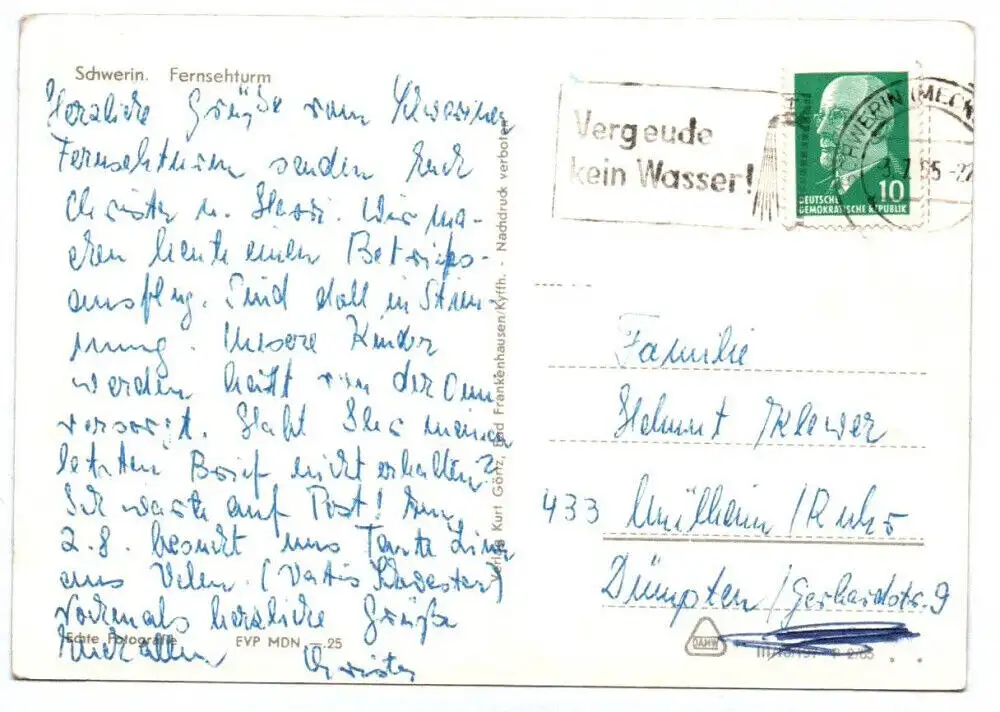 Schwerin. Fernsehturm
Herzliche Grüße vom Schweriner
Fernsehturm senden Euch
Christa u. Harri. Wir ma-
chen heute einen Betriebs-
ausflug. Sind doll in Stim-
mung. Unsere Kinder
werden heute von der Oma
versorgt. Habt Ihr meinen
letzten Brief nicht erhalten?
Ich warte auf Post! Am
2.8. besucht uns Tante
aus Velen. (Vatis Schwester)
Nochmals herzliche Grüße
Euch allen Christa
Echte Fotografie EVP MDN —.25
Verlag Kurt Görtz, Bad Frankenhausen/Kyffh. - Nachdruck verboten
Vergeude
kein Wasser!
SCHWERIN (MECKL
3.7.65-22
10
DEUTSCHE
DEMOKRATISCHE REPUBLIK
Familie
Helmut Klewer
433 Mülheim/Ruhr
Dümpten/Gerhardstr. 9
DAHW